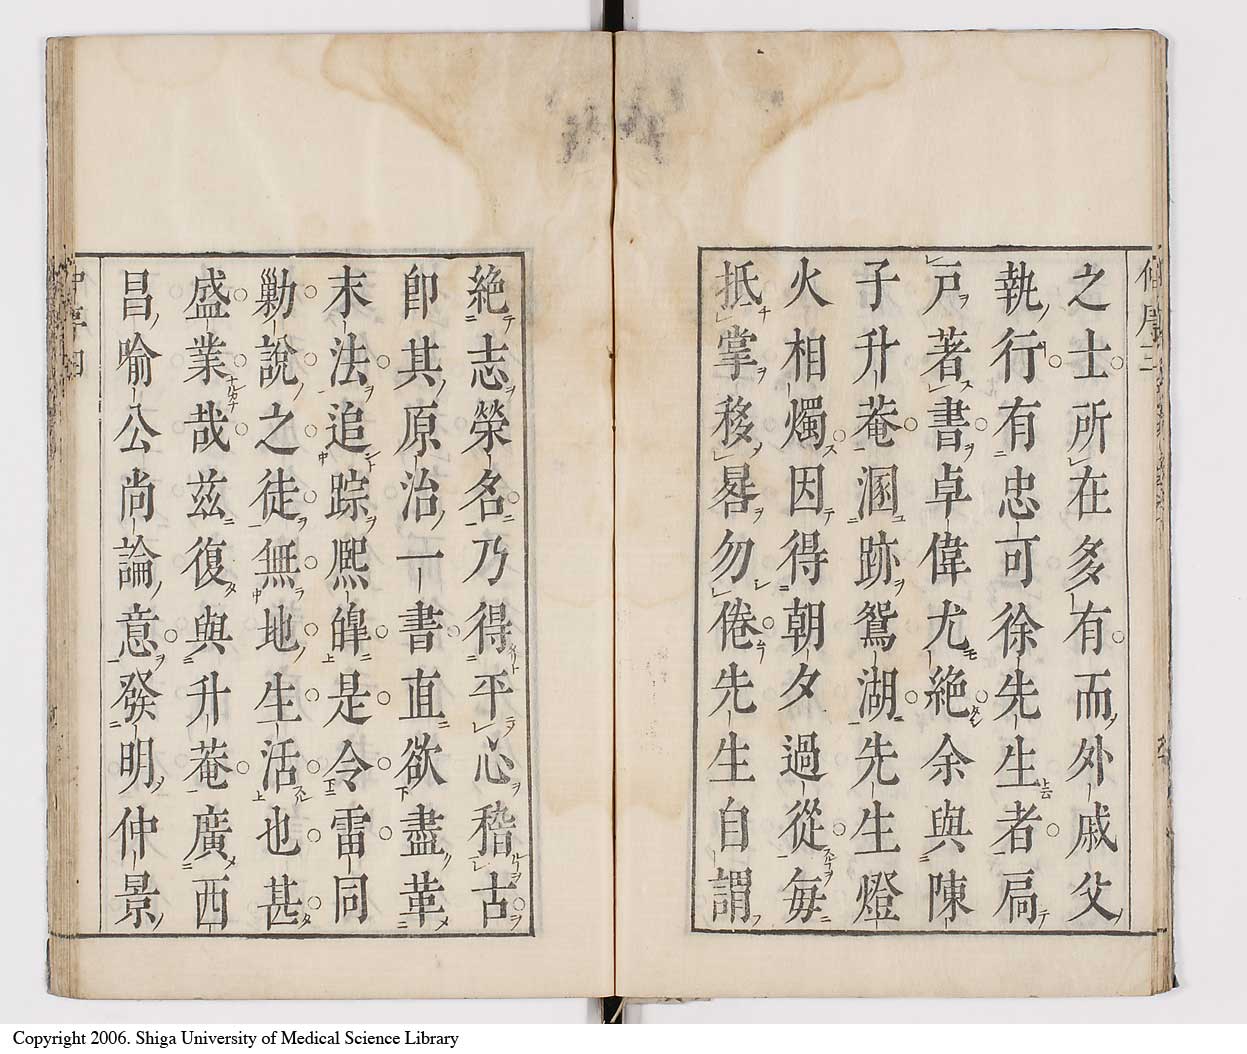 之士所在多有而外戚父
執行有忠可徐先生者扃
戸著書卓偉尤絶余與陳
子升菴溷跡鴛湖先生燈
火相燭因得朝夕過從毎
抵掌移晷勿倦先生自謂
絶志榮名乃得平心稽古
卽其原治一書直欲盡革
末法追踪熈皥是令雷同
勦說之徒無地生活也甚
盛業哉茲復與升菴廣西
昌喻公尚論意發明仲景
Copyright 2006. Shiga University of Medical Science Library